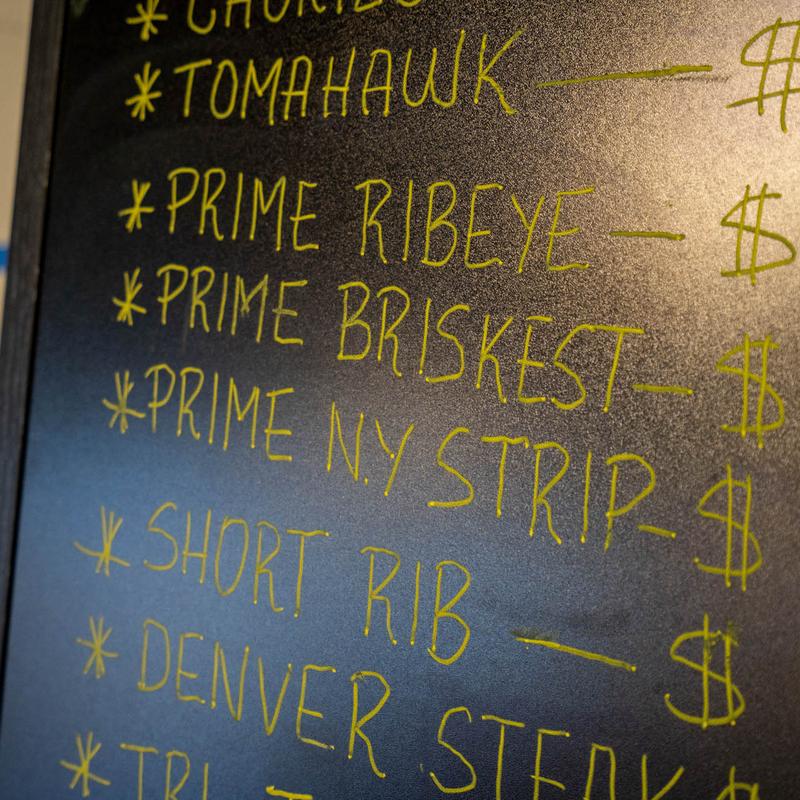 * TOMAHAWK — $
* PRIME RIBEYE — $
* PRIME BRISKEST — $
* PRIME N.Y STRIP - $
* SHORT RIB — $
* DENVER STEAK $
* TRI -